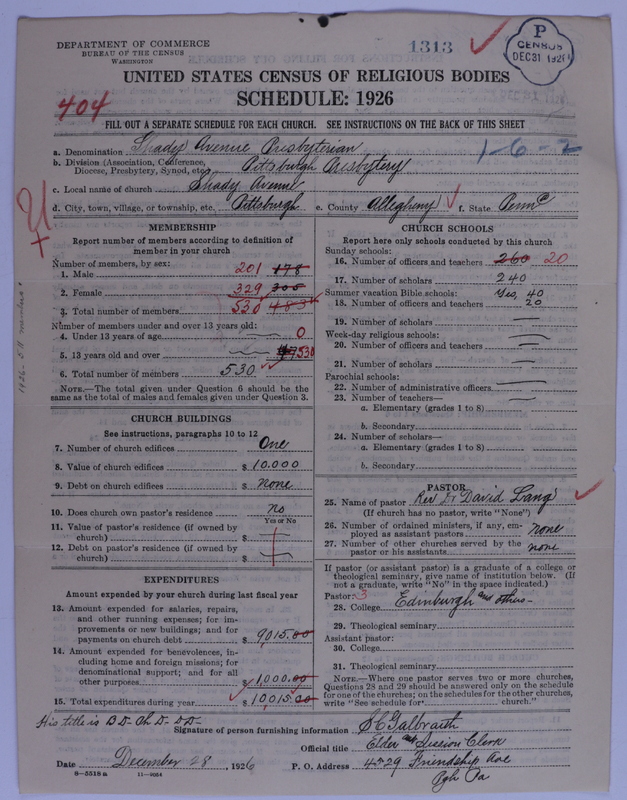 DEPARTMENT OF COMMERCE
BUREAU OF THE CENSUS
WASHINGTON
1313
P
CENSUS
DEC 31 1926
UNITED STATES CENSUS OF RELIGIOUS BODIES
SCHEDULE: 1926
404
FILL OUT A SEPARATE SCHEDULE FOR EACH CHURCH. SEE INSTRUCTIONS ON THE BACK OF THIS SHEET
a. Denomination Shady Avenue Presbyterian
1-6-2
b. Division (Association, Conference, Diocese, Presbytery, Synod, etc.) Pittsburgh Presbytery
c. Local name of church Shady Avenue
d. City, town, village, or township, etc. Pittsburgh e. County Allegheny f. State Penna
MEMBERSHIP
Report number of members according to definition of
member in your church
Number of members by sex:
1. Male 201 178
2. Female 329 305
3. Total number of members 530 483
Number of members under and over 13 years old:
4. Under 13 years of age 0
5. 13 years old and over 530
6. Total number of members 530
NOTE.—The total given under Question 6 should be
same as the total of males and females given under Question 3.
CHURCH BUILDINGS
See instructions, paragraphs 10 to 12
7. Number of church edifices One
8. Value of church edifices $ 10.000
9. Debt on church edifices $ None
10. Does church own pastor's residence No
Yes or No
11. Value of pastor's residence (if owned by
church) $
12. Debt on pastor's residence (if owned by
church) $
EXPENDITURES
Amount expended by your church during last fiscal year
13. Amount expended for salaries, repairs,
and other running expenses; for im-
provements or new buildings; and for
payments on church debt $ 9,015.00
14. Amount expended for benevolences, in-
cluding home and foreign missions; for
denominational support; and for all
other purposes $ 1,000.00
15. Total expenditures during year $ 10,015.00
CHURCH SCHOOLS
Report here only schools conducted by this church
Sunday schools:
16. Number of officers and teachers 260 20
17. Number of scholars 240
Summer vacation Bible schools: Yes, 40
18. Number of officers and teachers 20
19. Number of scholars
Week-day religious schools:
20. Number of officers and teachers
21. Number of scholars
Parochial schools:
22. Number of administrative officers
23. Number of teachers—
a. Elementary (grades 1 to 8)
b. Secondary
24. Number of scholars—
a. Elementary (grades 1 to 8)
b. Secondary
PASTOR
25. Name of pastor Rev Dr David Lang
(If church has no pastor, write "None")
26. Number of ordained ministers, if any, em-
ployed as assistant pastors none
27. Number of other churches served by the
pastor or his assistants none
If pastor (or assistant pastor) is a graduate of a college or
theological seminary, give name of institution below. (If
not a graduate, write "No" in the space indicated.)
Pastor: 3
28. College Edinburgh and others
29. Theological seminary
Assistant pastor:
30. College
31. Theological seminary
NOTE.—Where one pastor serves two or more churches,
Questions 28 and 29 should be answered only on the schedule
for one of the churches; on the schedules for the other churches,
write "See schedule for church."
His title is B D- Ph D- D D-
Signature of person furnishing information S C Galbraith
Official title Elder and Session Clerk
Date December 28, 1926 P. O. Address Friendship Ave
Pgh Pa
8-5518a 11-9064